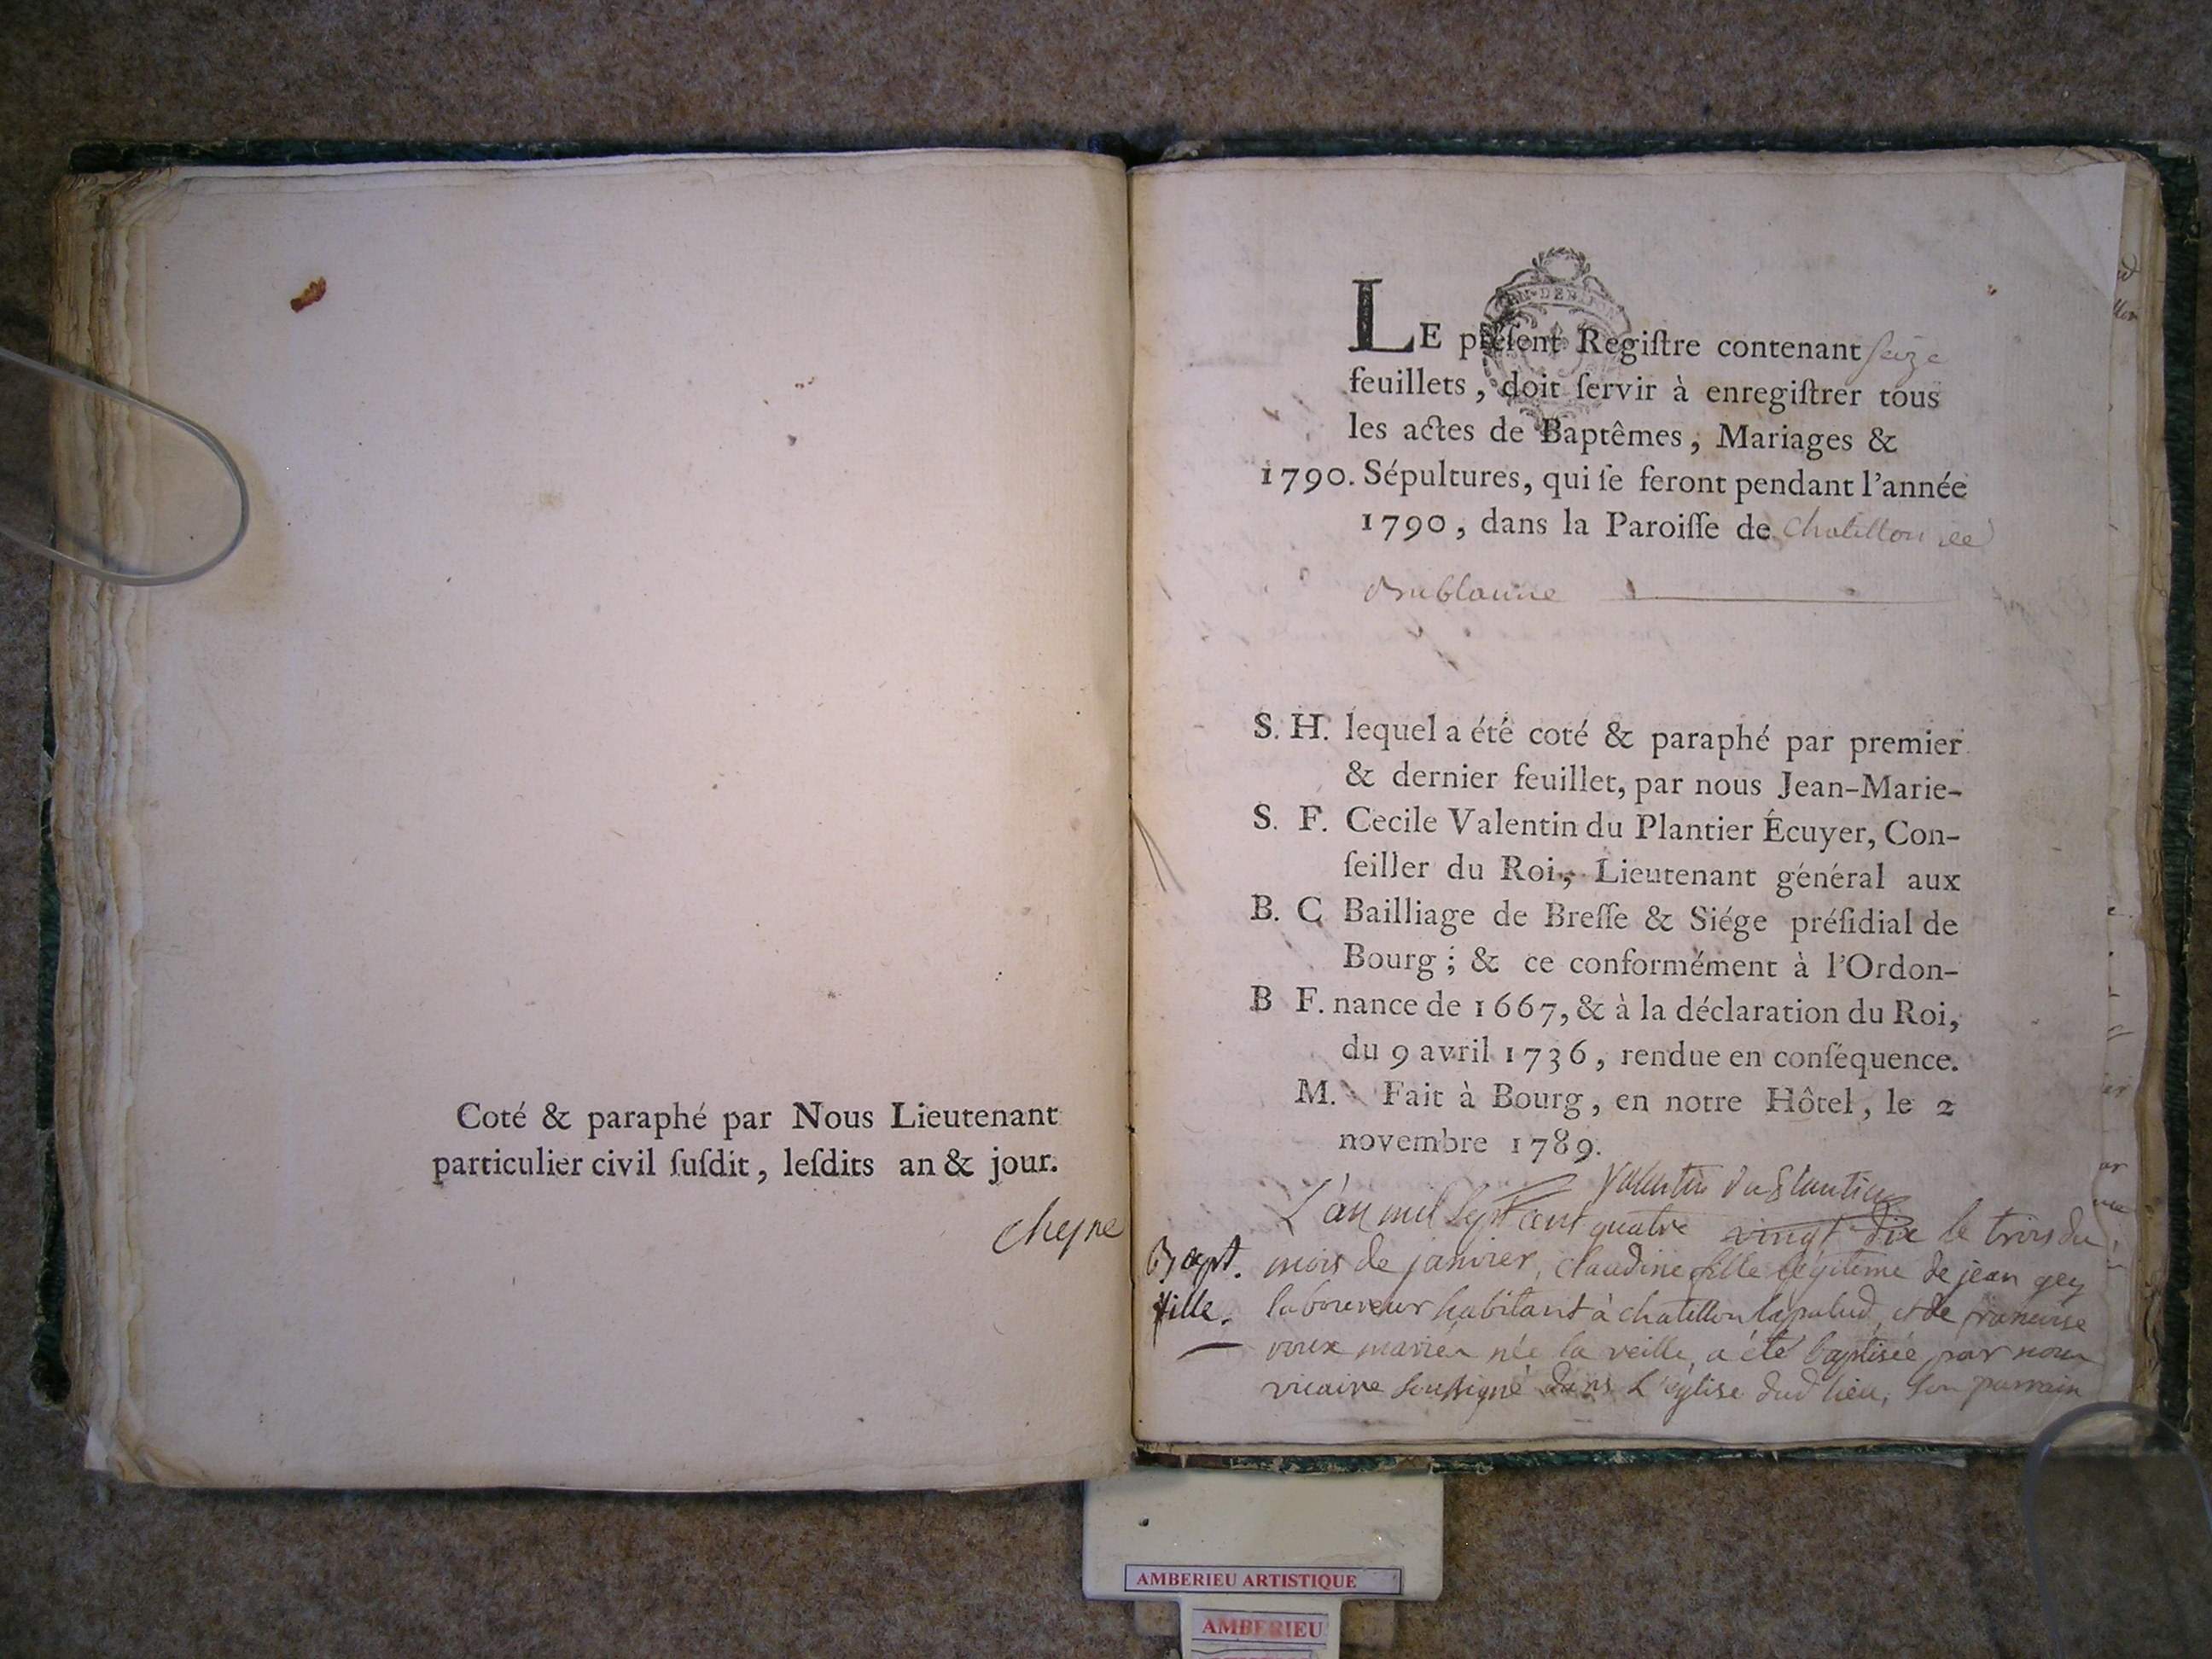 Coté & paraphé par Nous Lieutenant
particulier civil ſuſdit, leſdits an & jour.
cheyne
LE préſent Regiſtre contenant ſeize
feuillets, doit ſervir à enregiſtrer tous
les actes de Baptêmes, Mariages &
1790. Sépultures, qui ſe feront pendant l'année
1790, dans la Paroiſſe de Chatillon
S. H. lequel a été coté & paraphé par premier
& dernier feuillet, par nous Jean-Marie-
S. F. Cecile Valentin du Plantier Écuyer, Con-
ſeiller du Roi, Lieutenant général aux
B. C Bailliage de Breſſe & Siége préſidial de
Bourg; & ce conformément à l'Ordon-
B F. nance de 1667, & à la déclaration du Roi,
du 9 avril 1736, rendue en conſéquence.
M. Fait à Bourg, en notre Hôtel, le 2
novembre 1789.
Valentin du Plantier
L'an mil sept cent quatre vingt dix le trois du
Bapt. mois de janvier, claudine fille légitime de jean gey
fille. laboureur habitant à chatillon lapalud, et de francoise
roux mariés née la veille, a été baptisée par nous
vicaire soussigné dans L'église dud lieu, son parrain
AMBERIEU ARTISTIQUE
AMBERIEU